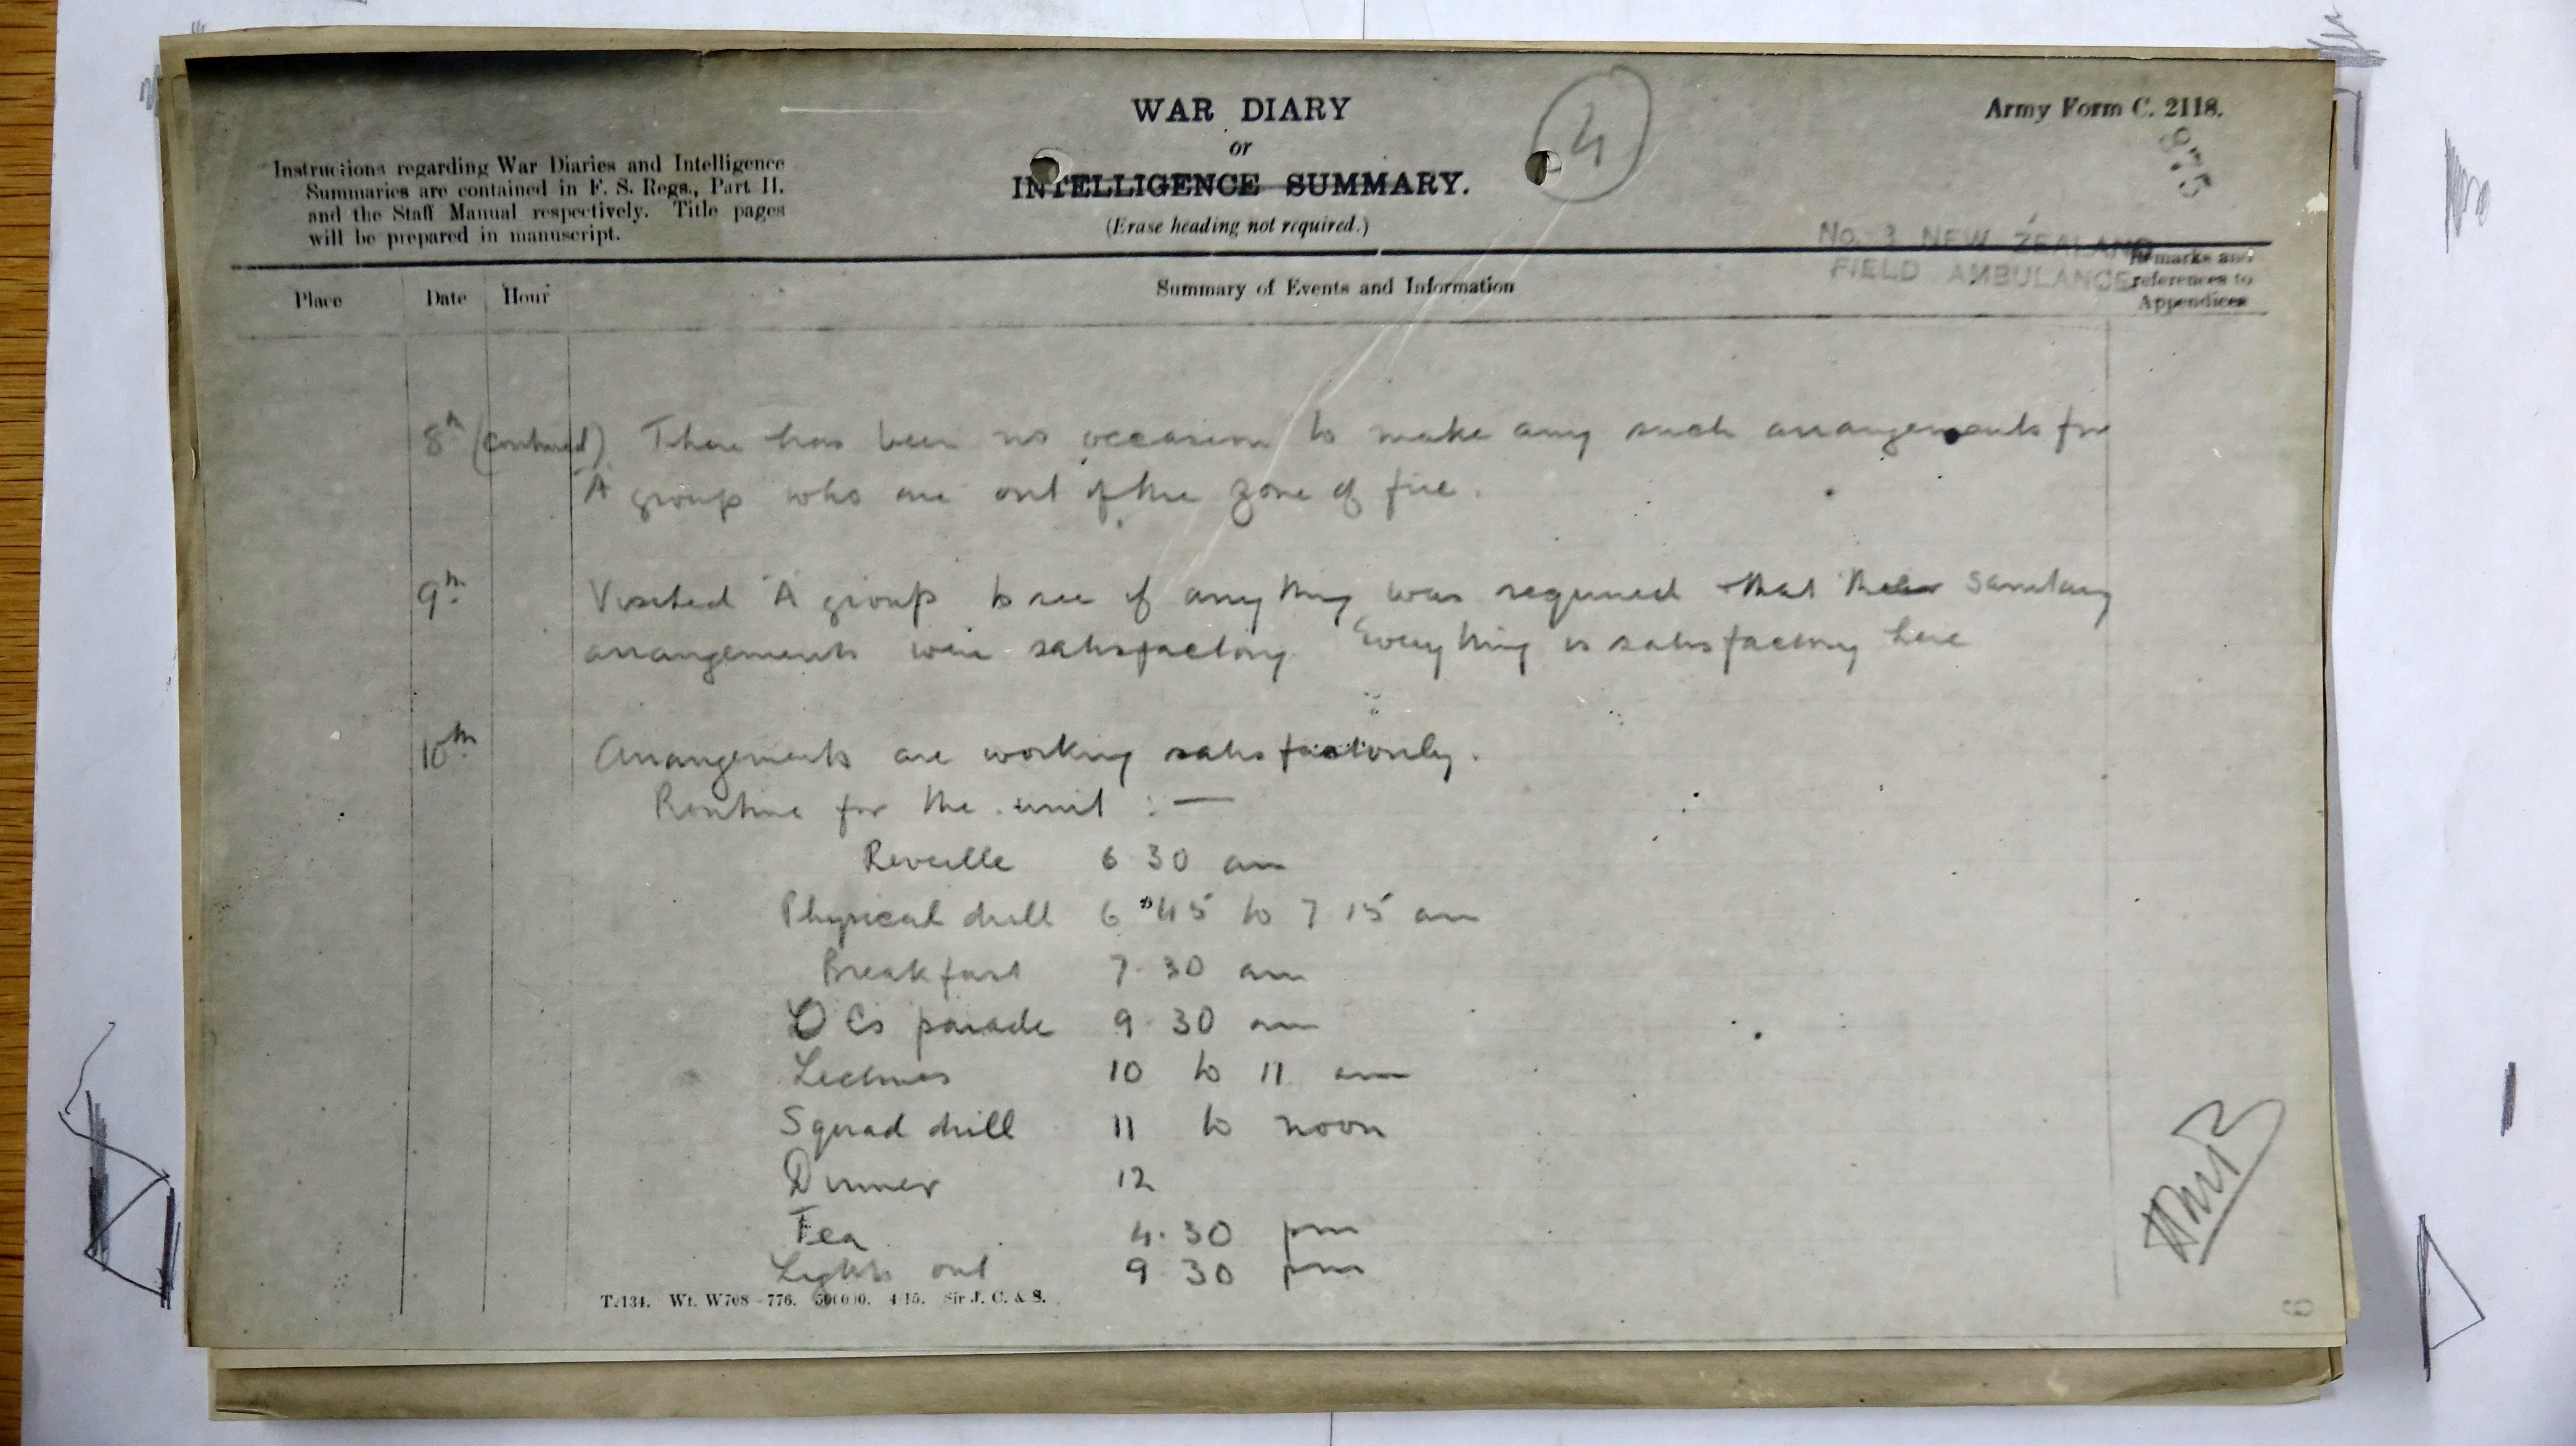 WAR DIARY
or
INTELLIGENCE SUMMARY.
(Erase heading not required.)
4
Army Form C. 2118.
Instructions regarding War Diaries and Intelligence
Summaries are contained in F. S. Regs., Part II.
and the Staff Manual respectively. Title pages
will be prepared in manuscript.
No. 3 NEW ZEALAND
FIELD AMBULANCE
Place
Date
Hour
Summary of Events and Information
Remarks and
references to
Appendices
8th (continued) There has been no occasion to make any such arrangements for
A group who are out of the zone of fire.
9th Visited A group to see if anything was required & that their sanitary
arrangements were satisfactory. Everything is satisfactory here
10th Arrangements are working satisfactorily.
Routine for the unit :—
Reveille 6 30 am
Physical drill 6 45 to 7 15 am
Breakfast 7.30 am
OCs parade 9.30 am
Lectures 10 to 11 am
Squad drill 11 to noon
Dinner 12
Tea 4.30 pm
Lights out 9 30 pm
4/15. Sir J. C. & S.